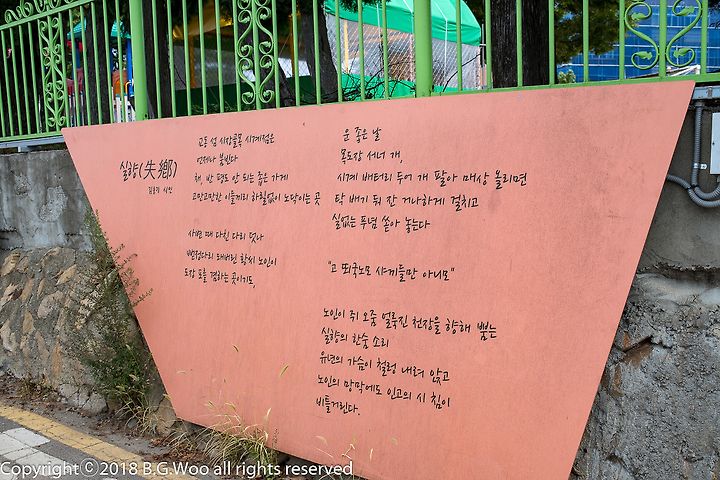 실향(失鄕)
김용기 시인
교동 섬 시장골목 시계점은
언제나 붐빈다
채, 반 평도 안 되는 좁은 가게
고만고만한 이들끼리 하릴없이 노닥이는 곳
사변 때 다친 다리 덧나
뻗정다리 돼버린 황씨 노인이
도장 포를 겸하는 곳이기도,
운 좋은 날
목도장 서너 개,
시계 배터리 두어 개 팔아 매상 올리면
탁 배기 둬 잔 거나하게 걸치고
실없는 푸념 쏟아 놓는다
"고 뙤국노모 샤끼들만 아니모"
노인이 쥐 오줌 얼룩진 천장을 향해 뿜는
실향의 한숨 소리
유년의 가슴이 철렁 내려 앉고
노인의 망막에도 인고의 시 침이
비틀거린다.
Copyright ⓒ 2018 B.G.Woo all rights reserved